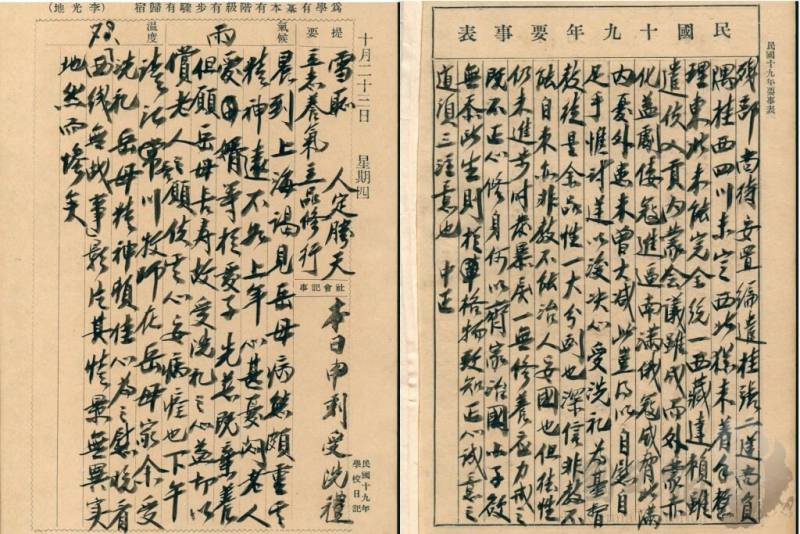 民國十九年要事表
民國十九年要事表
殘部尚待安置編遣桂張二逆尚負
隅桂西四川未定西北猶未着手整
理東北未能完全統一西藏達賴雖
遣使入貢內蒙會議雖成而外蒙赤
化益劇倭寇進逼南滿俄寇威脅北滿
內憂外患未曾大減此豈得以自慰自
足乎惟討逆以後決心受洗禮為基督
教徒是余品性一大分別也深信非教不
能自束亦非教不能治人安國也但性
仍未進步時發暴戾一無修養應力戒之
既不正心修身何以齊家治國小子欲
無忝此生則於格物致知正心誠意之
道須三注意也 中正
為學有基本有階級有步驟有歸宿（李光地）
十月二十三日 星期四
提要
雪恥 人定勝天
立志養氣立品修行
社會記事
本日申刻受洗禮
氣候
雨
溫度
78
晨到上海謁見岳母病態頗重其
精神遠不如上年心甚憂悶老人
愛婿等於愛子先慈既棄養
但願岳母長壽故受洗禮之心益切以
償老人之願使其心安病痊也下午
請江常川牧師在岳母家余受
洗禮岳母精神頓佳心為之慰晚看
西線無戰事影片其情景無異實
地然而慘矣
民國十九年
學校日記